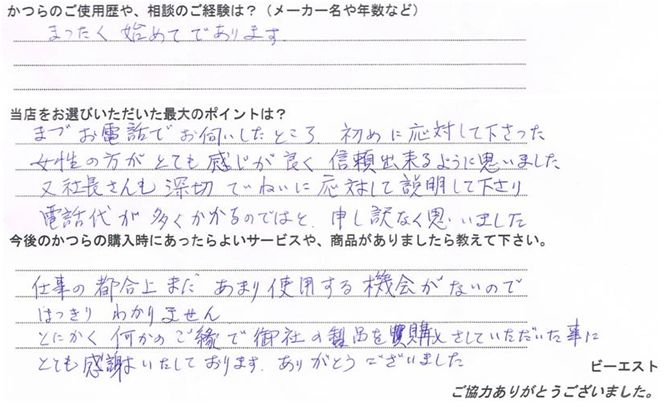 かつらのご使用歴や、相談のご経験は？（メーカー名や年数など）
まったく始めてであります
当店をお選びいただいた最大のポイントは？
まづお電話でお伺いしたところ、初めに応対して下さった
女性の方がとても感じが良く信頼出来るように思いました
又社長さんも深切ていねいに応対して説明して下さり
電話代が多くかかるのではと、申し訳なく思いました
今後のかつらの購入時にあったらよいサービスや、商品がありましたら教えて下さい。
仕事の都合上まだあまり使用する機会がないので
はっきりわかりません
とにかく何かのご縁で御社の製品を購入させていただいた事に
とても感謝いたしております。ありがとうございました
ビーエスト
ご協力ありがとうございました。